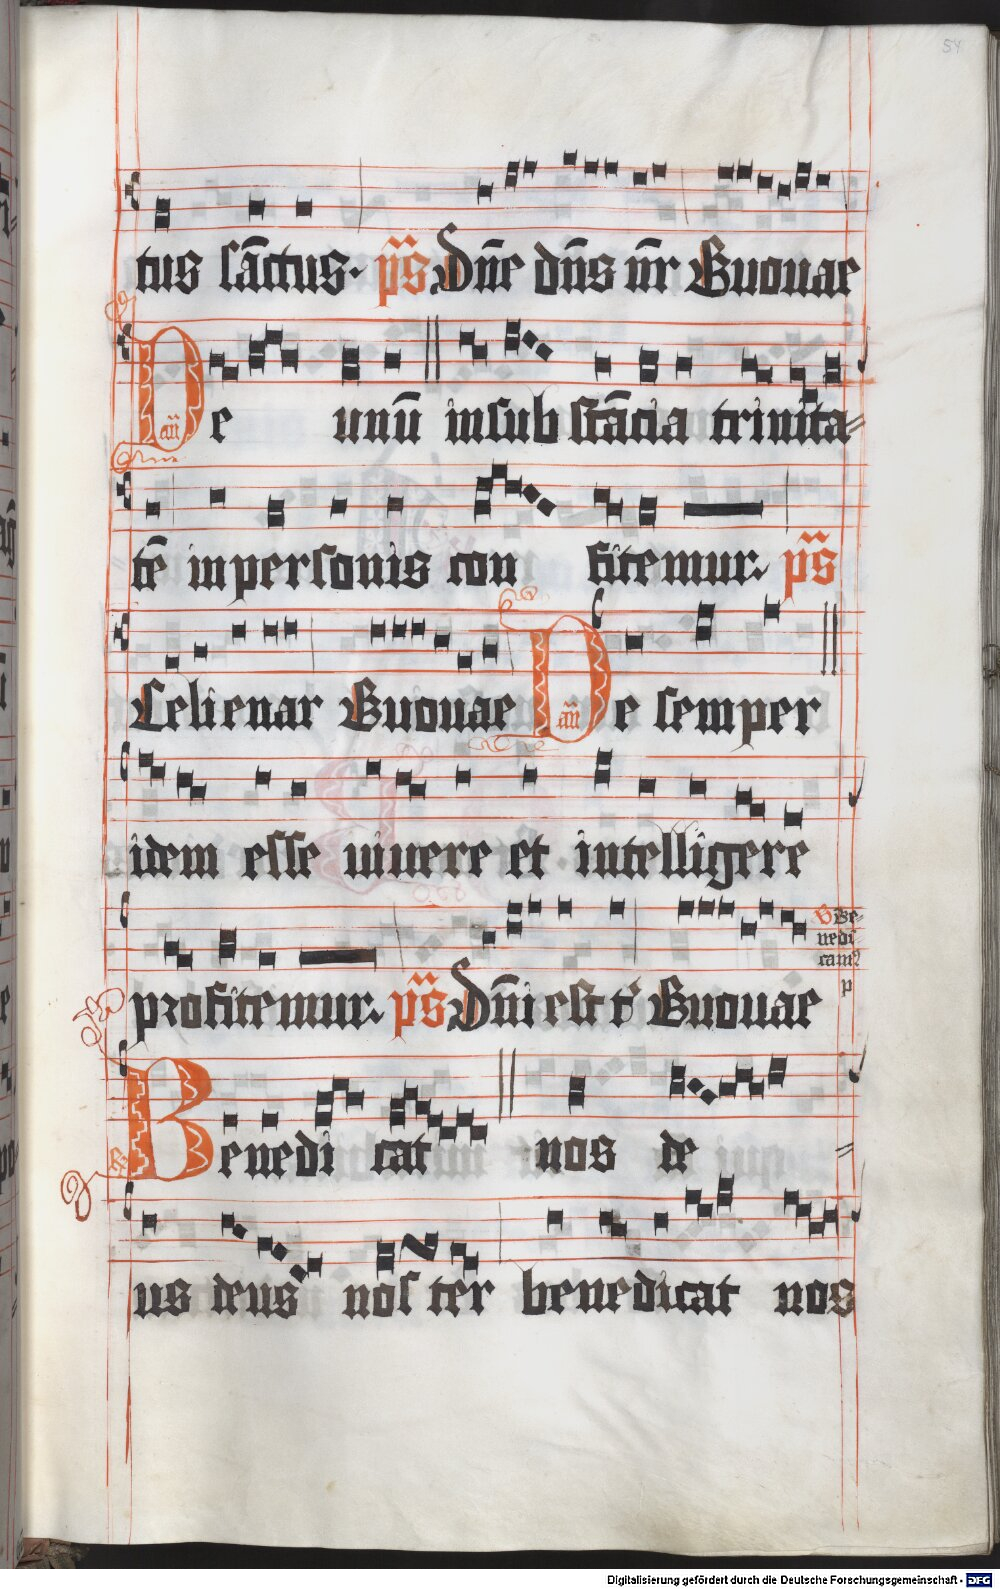 54
tus sāctus. p̄s Dn̄e dn̄s nr̄ Euouae
De unū in sub stācia trinita=
an̄
tē in personis con fitemur. p̄s
Celi enar Euouae De semper
an̄
idem esse uiuere et intelligere
profitemur. p̄s Dn̄i est t' Euouae
V Be=
nedi
cam9
p
Benedi cat nos de =
us deus nos ter benedicat nos
Digitalisierung gefördert durch die Deutsche Forschungsgemeinschaft - DFG